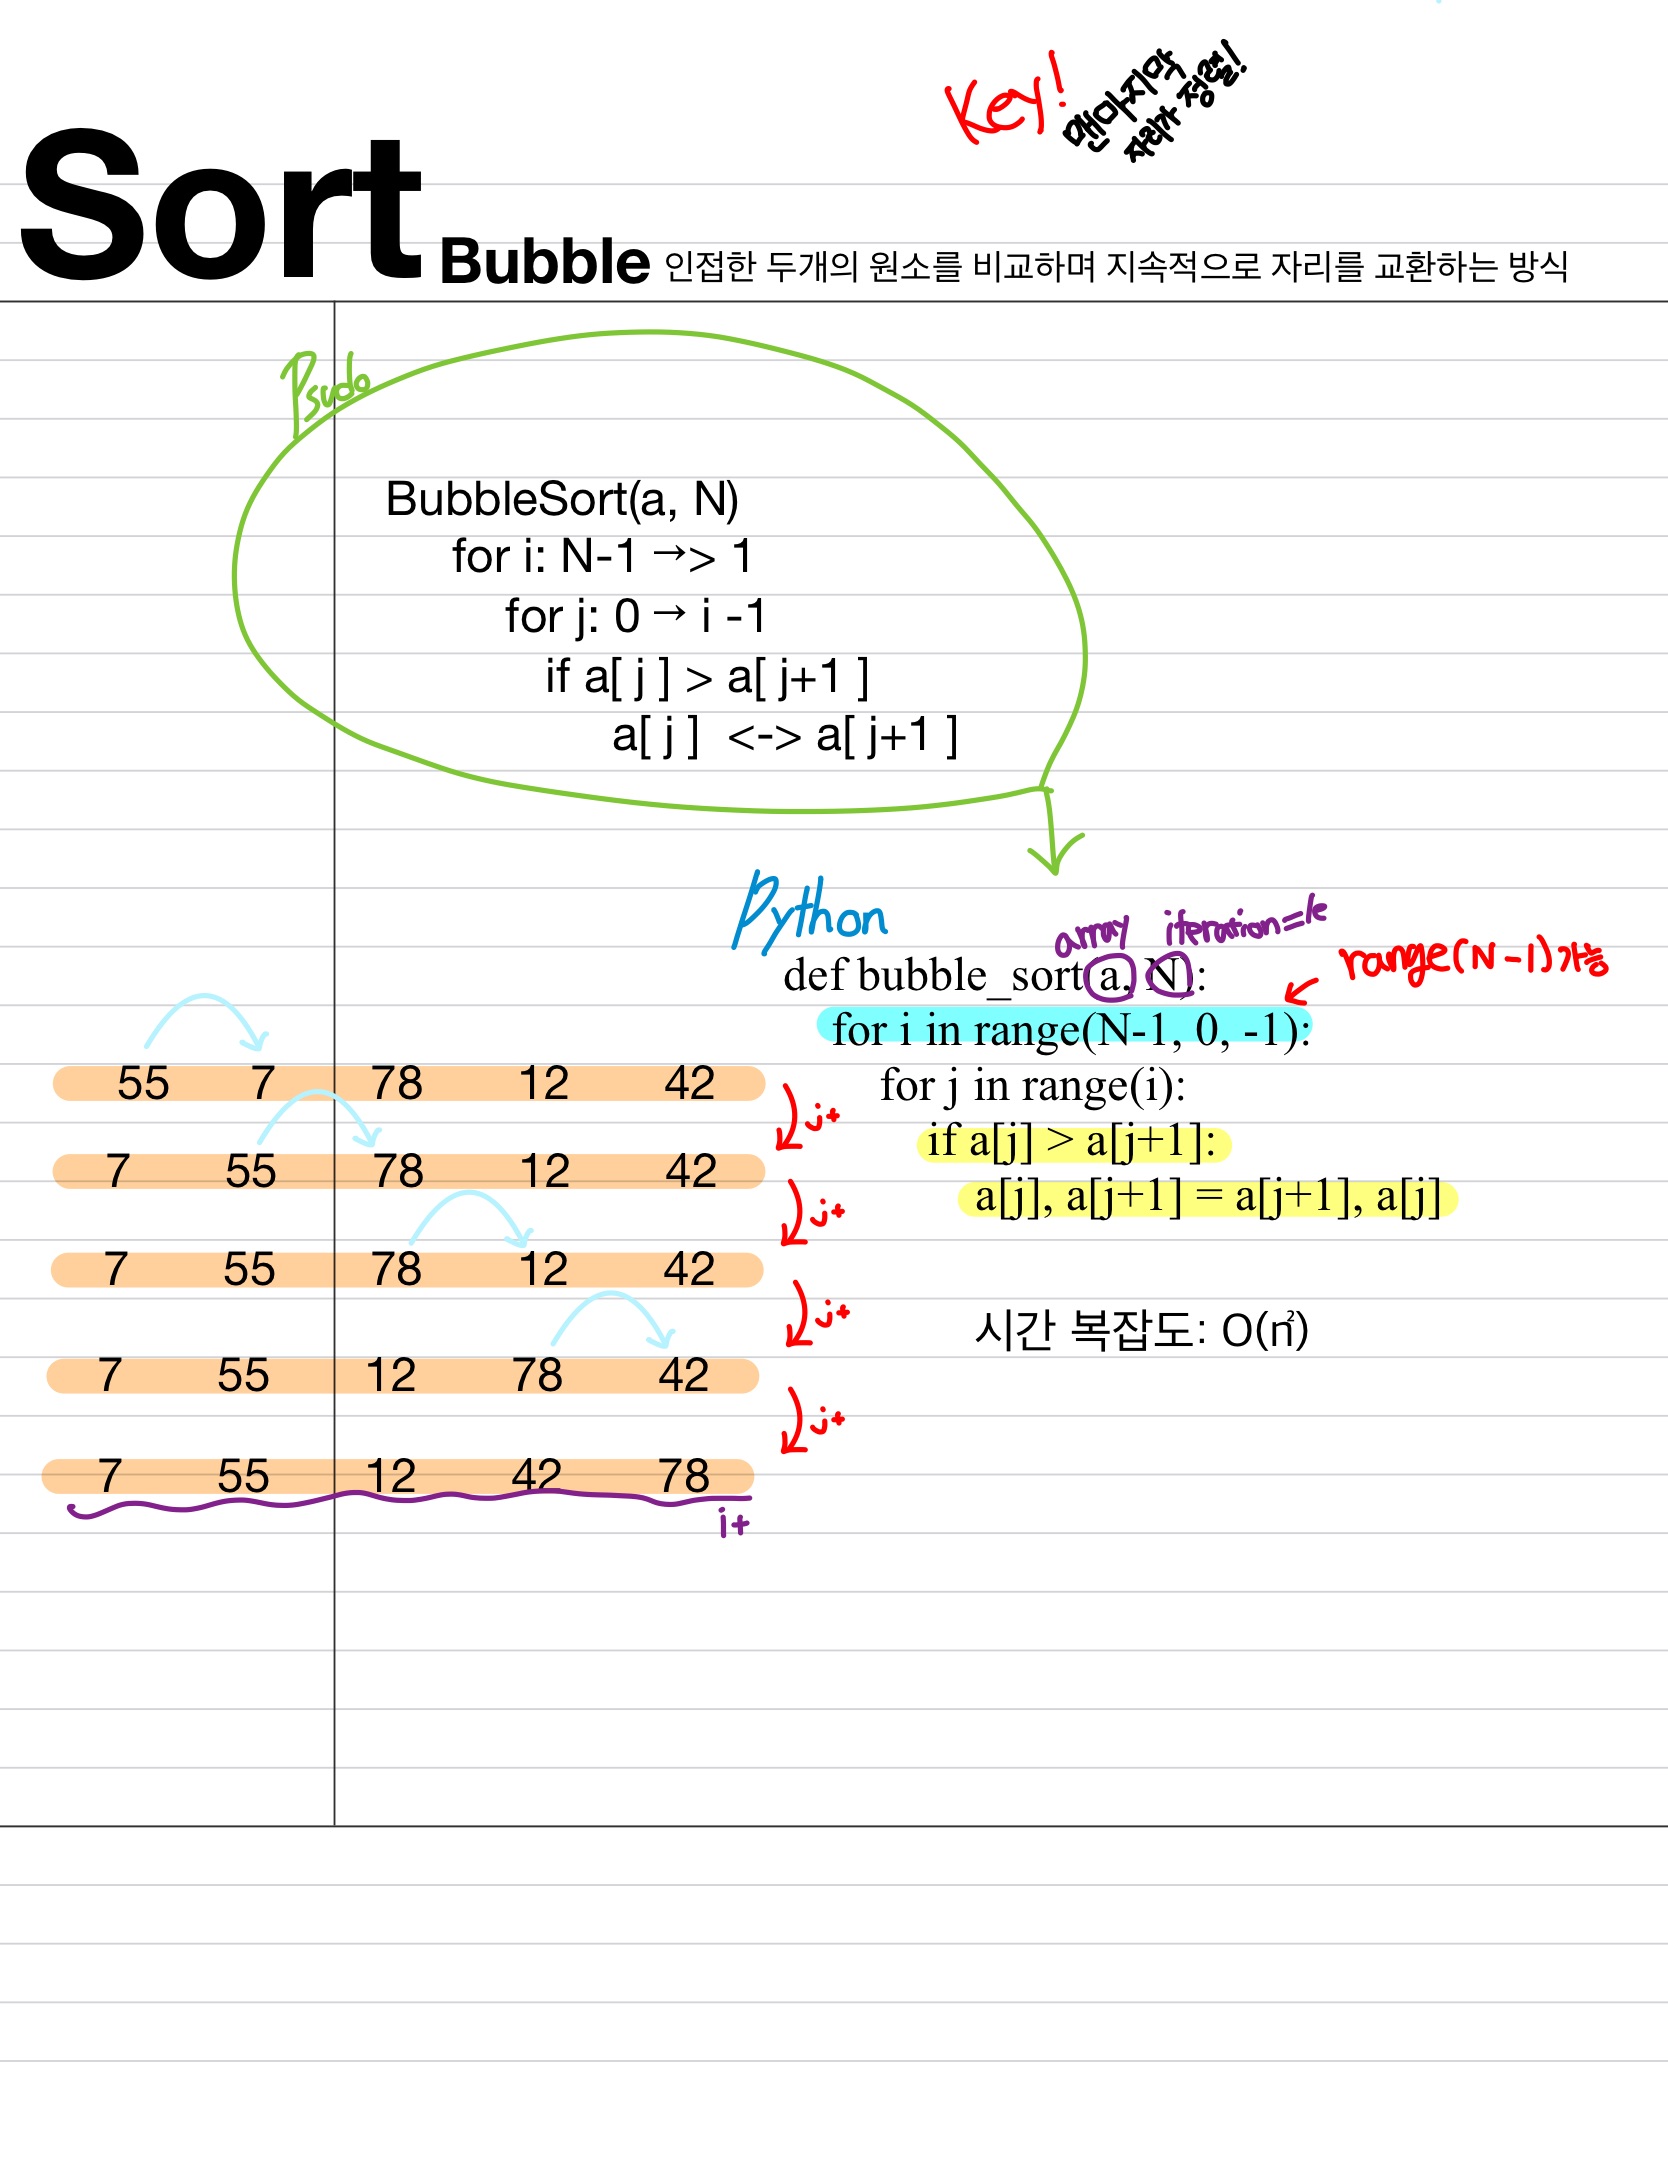 Key! 맨마지막
자리가 정렬!
Sort Bubble 인접한 두개의 원소를 비교하며 지속적으로 자리를 교환하는 방식
Psudo
BubbleSort(a, N)
for i: N-1 →> 1
for j: 0 → i -1
if a[ j ] > a[ j+1 ]
a[ j ] <-> a[ j+1 ]
Python
array iteration=k
def bubble_sort(a, N):
range(N-1)가능
for i in range(N-1, 0, -1):
for j in range(i):
if a[j] > a[j+1]:
a[j], a[j+1] = a[j+1], a[j]
시간 복잡도: O(n²)
55 7 78 12 42
j+
7 55 78 12 42
j+
7 55 78 12 42
j+
7 55 12 78 42
j+
7 55 12 42 78
i+